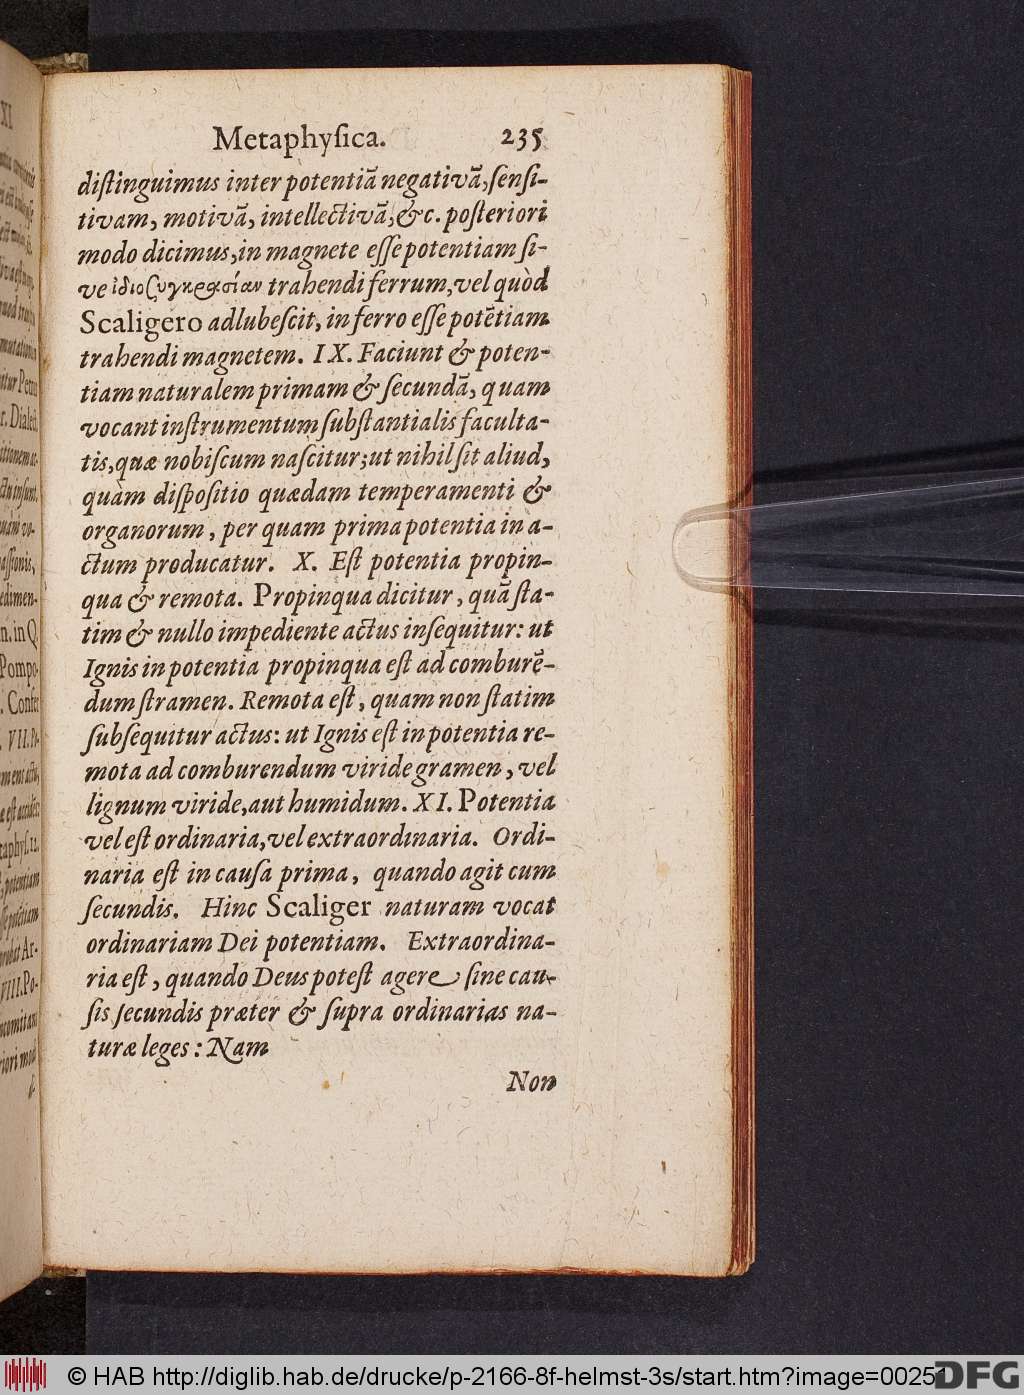 Metaphyſica. 235
diſtinguimus inter potentiā negativā, ſenſi-
tivam, motivā, intellectivā, &c. poſteriori
modo dicimus, in magnete eſſe potentiam ſi-
ve ἰδιοζυγκρασίαν trahendi ferrum, vel quòd
Scaligero adlubeſcit, in ferro eſſe potētiam
trahendi magnetem. IX. Faciunt & poten-
tiam naturalem primam & ſecundā, quam
vocant inſtrumentum ſubſtantialis faculta-
tis, quæ nobiſcum naſcitur; ut nihil ſit aliud,
quàm diſpoſitio quædam temperamenti &
organorum, per quam prima potentia in a-
ctum producatur. X. Eſt potentia propin-
qua & remota. Propinqua dicitur, quā ſta-
tim & nullo impediente actus inſequitur: ut
Ignis in potentia propinqua eſt ad comburē-
dum ſtramen. Remota eſt, quam non ſtatim
ſubſequitur actus: ut Ignis eſt in potentia re-
mota ad comburendum viride gramen, vel
lignum viride, aut humidum. XI. Potentia
vel eſt ordinaria, vel extraordinaria. Ordi-
naria eſt in cauſa prima, quando agit cum
ſecundis. Hinc Scaliger naturam vocat
ordinariam Dei potentiam. Extraordina-
ria eſt, quando Deus poteſt agere ſine cau-
ſis ſecundis præter & ſupra ordinarias na-
turæ leges: Nam
Non
© HAB http://diglib.hab.de/drucke/p-2166-8f-helmst-3s/start.htm?image=00251
DFG